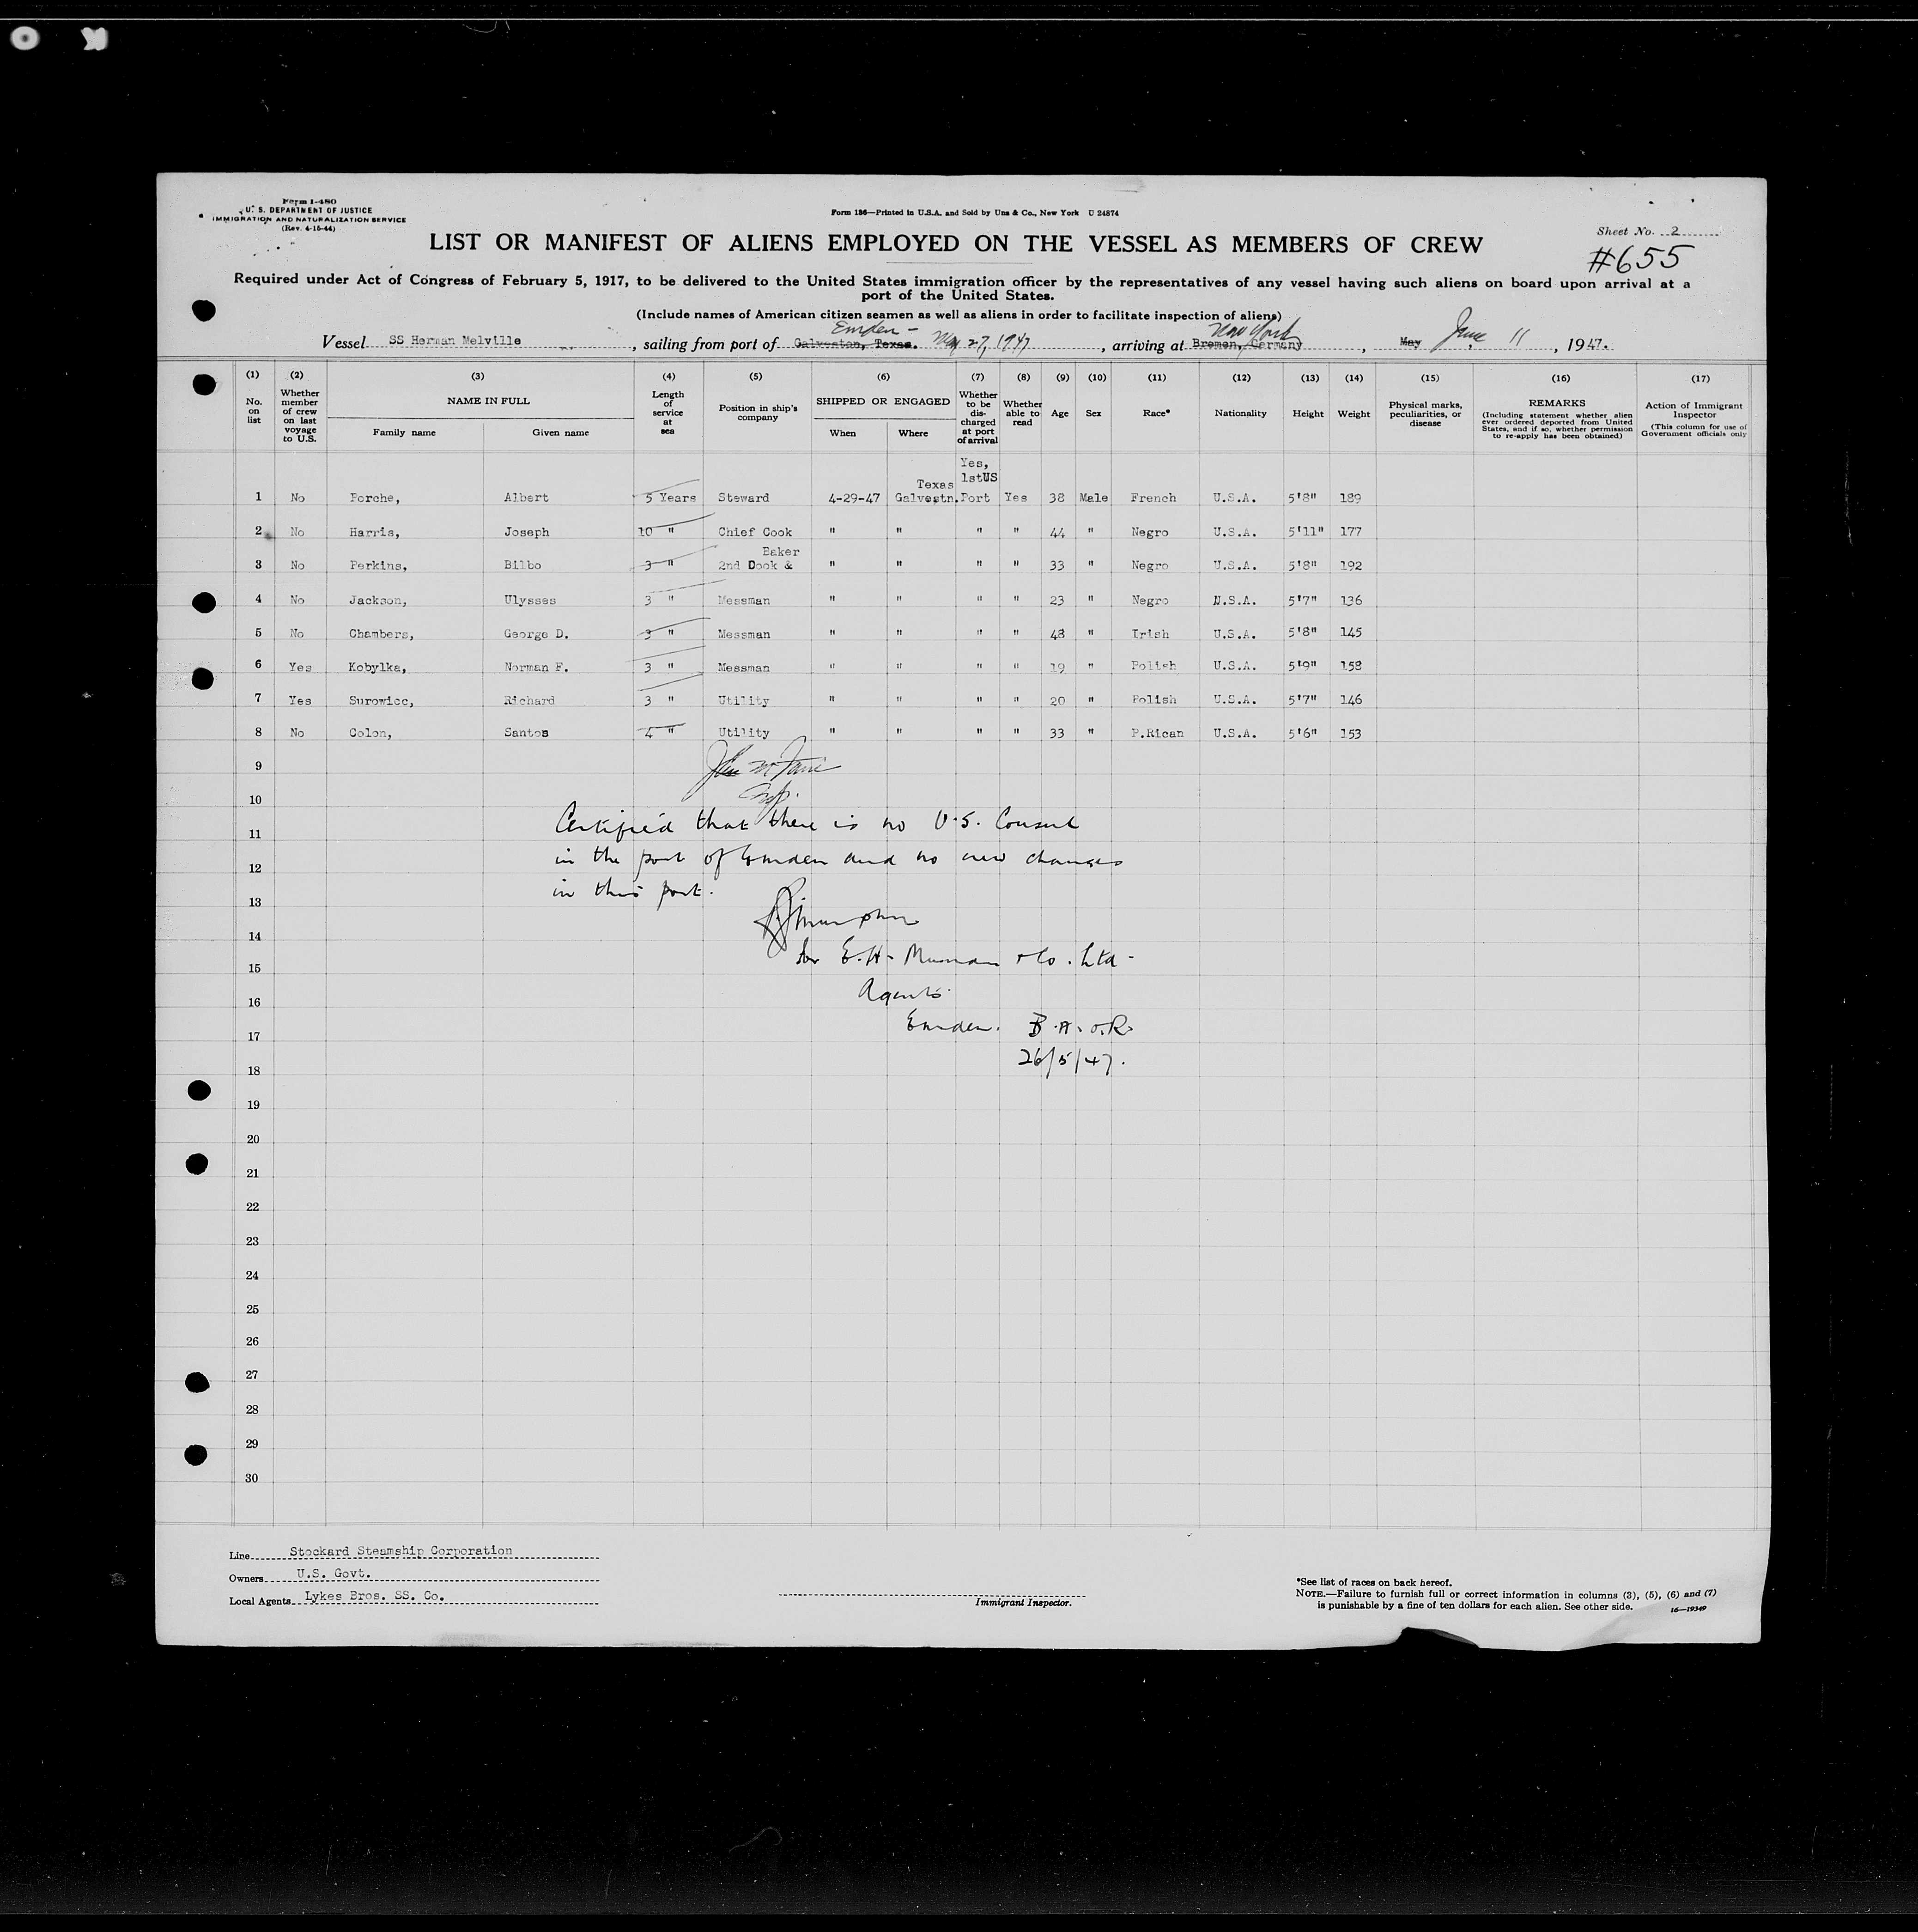 Form I-480
U. S. DEPARTMENT OF JUSTICE
IMMIGRATION AND NATURALIZATION SERVICE
(Rev. 4-15-44)
Form 186—Printed in U.S.A. and Sold by Unz & Co., New York U 24874
Sheet No. 2
#655
LIST OR MANIFEST OF ALIENS EMPLOYED ON THE VESSEL AS MEMBERS OF CREW
Required under Act of Congress of February 5, 1917, to be delivered to the United States immigration officer by the representatives of any vessel having such aliens on board upon arrival at a
port of the United States.
(Include names of American citizen seamen as well as aliens in order to facilitate inspection of aliens)
Emden - New York
Vessel SS Herman Melville, sailing from port of Galveston, Texas. May 27, 1947, arriving at Bremen, Germany, May June 11, 1947.
(1) (2) (3) (4) (5) (6) (7) (8) (9) (10) (11) (12) (13) (14) (15) (16) (17)
No. on list Whether member of crew on last voyage to U.S. NAME IN FULL Family name Given name Length of service at sea Position in ship's company SHIPPED OR ENGAGED When Where Whether to be discharged at port of arrival Whether able to read Age Sex Race* Nationality Height Weight Physical marks, peculiarities, or disease REMARKS (Including statement whether alien ever ordered deported from United States, and if so, whether permission to re-apply has been obtained) Action of Immigrant Inspector (This column for use of Government officials only
Yes,
Texas 1stUS
1 No Porche, Albert 5 Years Steward 4-29-47 Galvestn. Port Yes 38 Male French U.S.A. 5'8" 189
2 No Harris, Joseph 10 " Chief Cook " " " " 44 " Negro U.S.A. 5'11" 177
Baker
3 No Perkins, Bilbo 3 " 2nd Dook & " " " " 33 " Negro U.S.A. 5'8" 192
4 No Jackson, Ulysses 3 " Messman " " " " 23 " Negro U.S.A. 5'7" 136
5 No Chambers, George D. 3 " Messman " " " " 48 " Irish U.S.A. 5'8" 145
6 Yes Kobylka, Norman F. 3 " Messman " " " " 19 " Polish U.S.A. 5'9" 158
7 Yes Surowicc, Richard 3 " Utility " " " " 20 " Polish U.S.A. 5'7" 146
8 No Colon, Santos 4 " Utility " " " " 33 " P.Rican U.S.A. 5'6" 153
9
10
Certified that there is no U.S. Consul
11
in the port of Emden and no crew changes
12
in this port.
13
14
for E.H. & Co. Ltd.
15
Agents
16
Emden. B.A.O.R.
17
26/5/47.
18
19
20
21
22
23
24
25
26
27
28
29
30
Line Stockard Steamship Corporation
Owners U.S. Govt.
Local Agents Lykes Bros. SS. Co.
Immigrant Inspector.
*See list of races on back hereof.
NOTE.—Failure to furnish full or correct information in columns (3), (5), (6) and (7)
is punishable by a fine of ten dollars for each alien. See other side.
16—19349